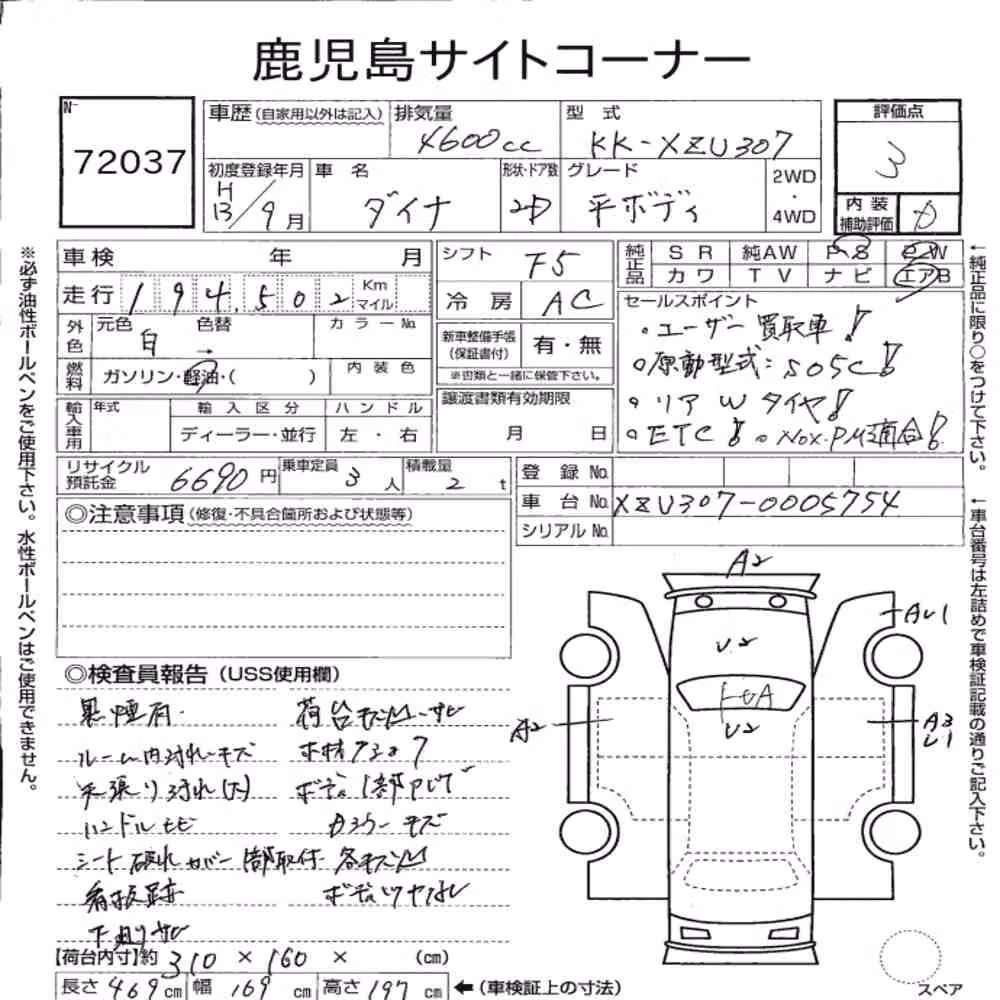 鹿児島サイトコーナー
No
72037
車歴(自家用以外は記入)
排気量
4600cc
型式
KK-XZU307
評価点
3
初度登録年月
H13/9月
車名
ダイナ
形状・ドア数
2D
グレード
平ボディ
2WD・4WD
内装補助評価
D
車検 年 月
走行 194,502 Km マイル
外色
元色 白 → 色替
カラーNo.
燃料
ガソリン・軽油・( )
内装色
輸入車用
年式
輸入区分
ディーラー・並行
ハンドル
左・右
シフト
F5
冷房
AC
新車整備手帳(保証書付)
有・無
※書類と一緒に保管下さい。
譲渡書類有効期限
月 日
純正品
SR 純AW PS PW
カワ TV ナビ エアB
セールスポイント
。ユーザー買取車!
。原動型式:S05C!
。リア Wタイヤ!
。ETC! 。Nox.PM適合!
リサイクル預託金 6690円
乗車定員 3人
積載量 2t
登録No.
車台No. XZU307-0005754
シリアルNo.
◎注意事項(修復・不具合箇所および状態等)
◎検査員報告(USS使用欄)
黒煙有
荷台キズ凹サビ
ルーム内汚れキズ
天張り汚れ(大)
ハンドルヒビ
シート破れカバー1部取付
各キズ凹
看板跡
下廻サビ
【荷台内寸】約310×160× (cm)
長さ469cm 幅169cm 高さ197cm ←(車検証上の寸法)
A2
AU1
U2
U2
A2
A3
U1
スペア
※必ず油性ボールペンをご使用下さい。水性ボールペンはご使用できません。
←純正品に限り○をつけて下さい。
←車台番号は左詰めで車検証記載の通りご記入下さい。